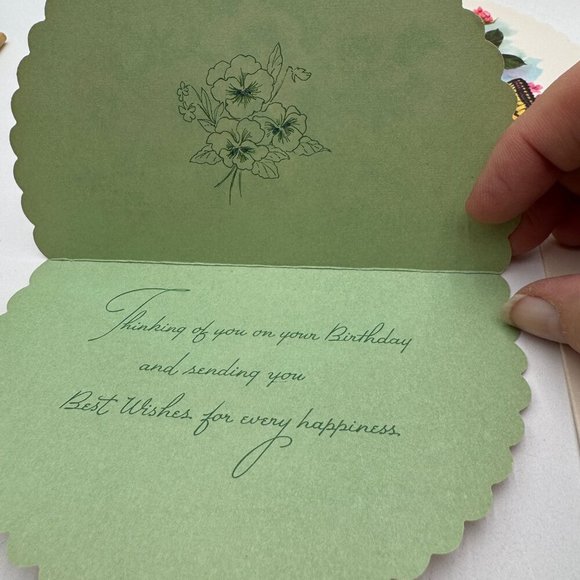 Thinking of you on your Birthday
and sending you
Best Wishes for every happiness